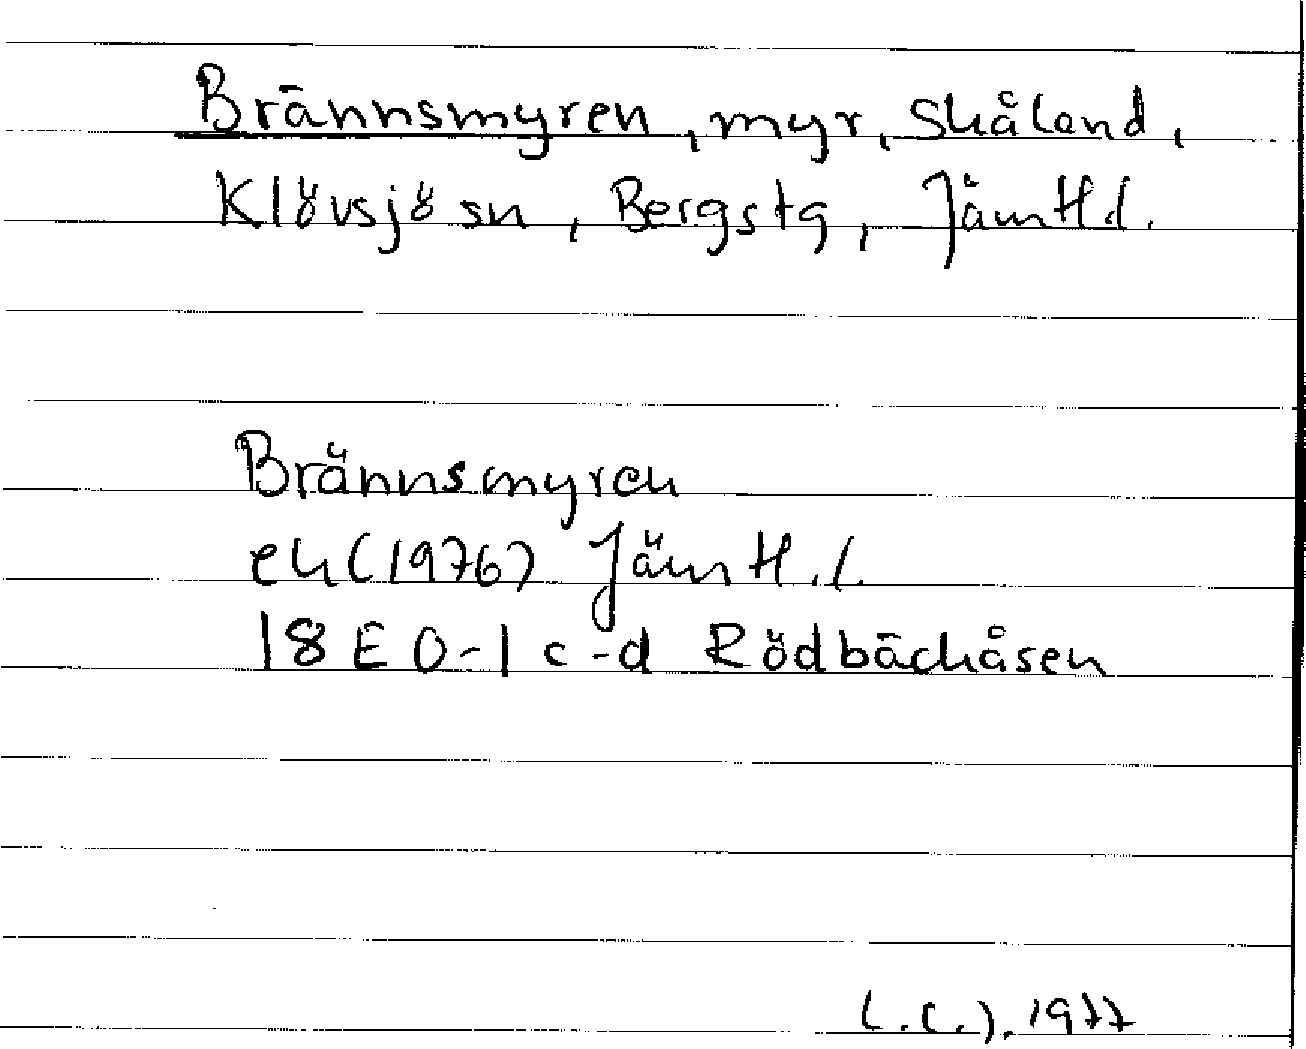 Brännsmyren, myr, Skåland,
Klövsjö sn, Bergs tg, Jämtl.l.
Brännsmyren
ek (1976) Jämtl.l.
18 E 0-1 c-d Rödbäckåsen
1977